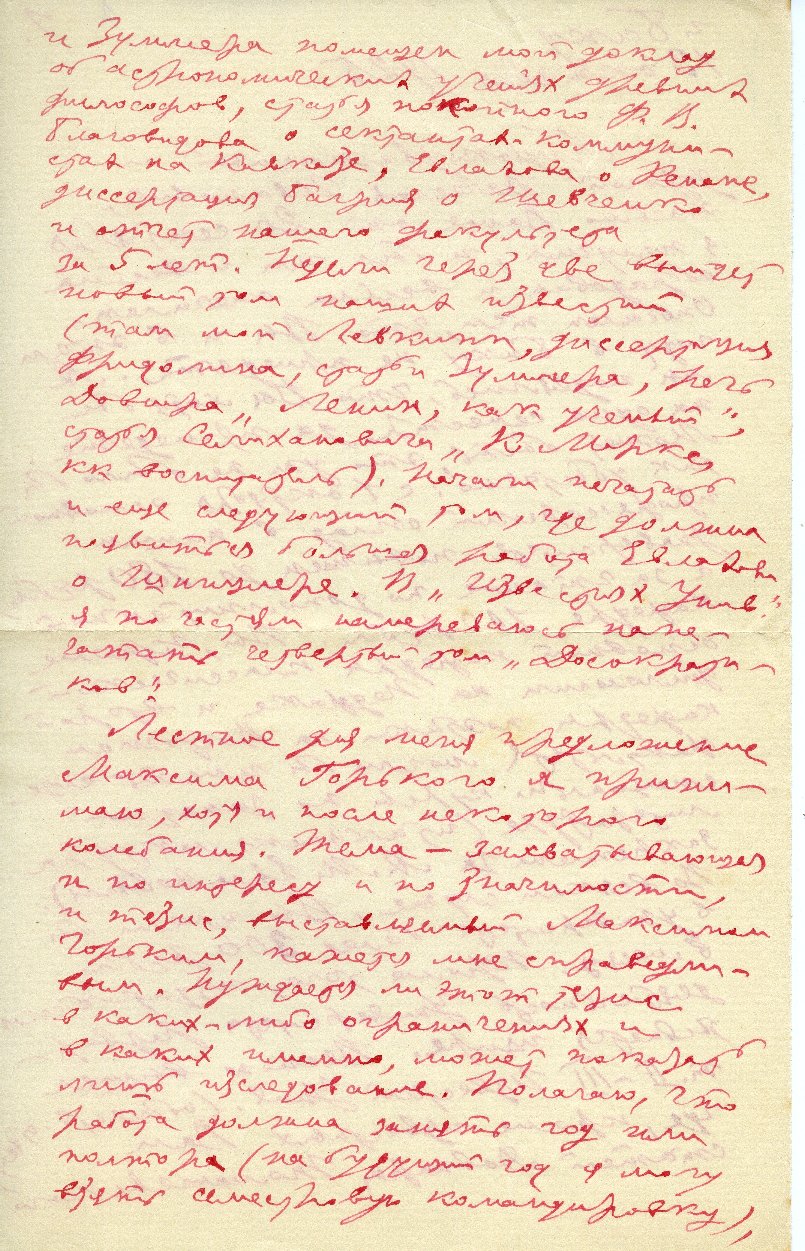 и Зуммера помещен мой доклад
об астрономических учениях древних
философов, статья покойного Ф. В.
Благовидова о сектантах-коммуни-
стах на Кавказе, Евлахова о Ренане,
диссертация Багрия о Шевченко
и отчет нашего факультета
за 5 лет. Недели через две выйдет
новый том наших известий
(там мой Левкипп, диссертация
Фридолина, статьи Зуммера, речь
"Ленин, как ученый",
статья Селихановича "К. Маркс
как воспитатель). Начали печатать
и еще следующий том, где должна
появиться большая работа Евлахова
о Шницлере. В "Известиях Унив."
я по частям намереваюсь напе-
чатать четвертый том "Досократи-
ков".
Лестное для меня предложение
Максима Горького я прини-
маю, хотя и после некоторого
колебания. Тема — захватывающая
и по интересу и по значимости,
и тезис, выставленный Максимом
Горьким, кажется мне справедли-
вым. Нуждается ли этот тезис
в каких-либо ограничениях и
в каких именно, может показать
лишь изследование. Полагаю, что
работа должна занять год или
полтора (на будущий год я могу
взять семестровую командировку),